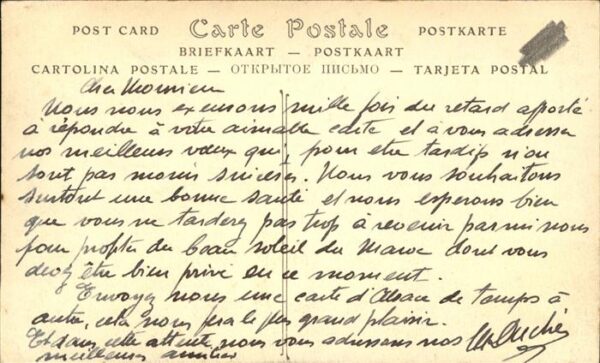 POST CARD Carte Postale POSTKARTE
BRIEFKAART — POSTKAART
CARTOLINA POSTALE — ОТКРЫТОЕ ПИСЬМО — TARJETA POSTAL
Cher Monsieur
Nous nous excusons mille fois du retard apporté
à répondre à votre aimable carte et à vous adresser
nos meilleurs voeux qui, pour etre tardifs n'en
sont pas moins sincères. Nous vous souhaitons
surtout une bonne santé et nous esperons bien
que vous ne tarderez pas trop à revenir parmi nous
pour profiter du beau soleil du Maroc dont vous
devez être bien privé en ce moment.
Envoyez nous une carte d'Alsace de temps à
autre, cela nous fera le plus grand plaisir.
Et dans cette attente nous vous adressons nos
meilleures amitiés